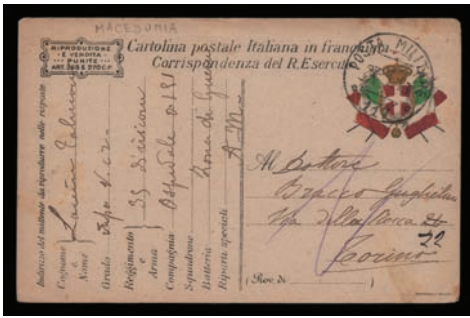 MACEDONIA
RIPRODUZIONE
E VENDITA
PUNITE
ART. 285 E 270 C.P.
Cartolina postale Italiana in franchigia
Corrispondenza del R. Esercito
POSTA MILITARE
Indirizzo del mittente da riprodurre nelle risposte
Cognome e Nome
Grado
Reggimento e Arma 35 Divisione
Compagnia Ospedale 0151
Squadrone Zona di Guerra
Batteria
Riparti speciali
Al Dottore
Bracco Guglielmo
Via della Rocca 20
22
Torino
(Prov. di )